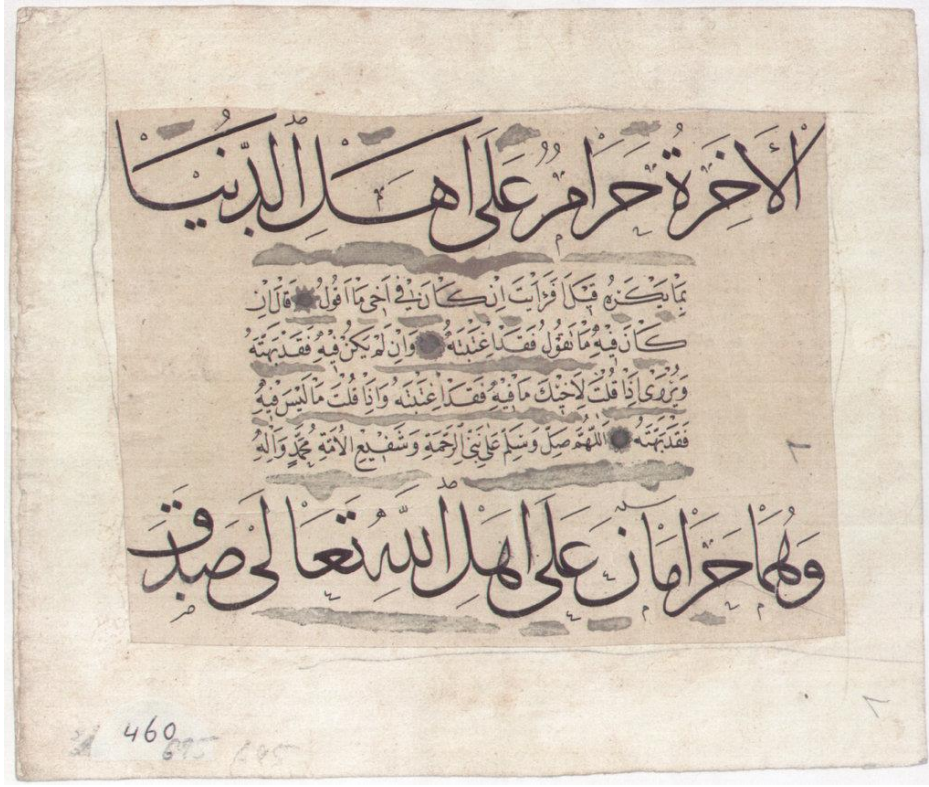 الْاٰخِرَةُ حَرَامٌ عَلَى اَهْلِ الدُّنْيَا
بِمَا يَكْرَهُ قِيلَ فَرَاَيْتَ اِنْ كَانَ فِي اَخِي مَا اَقُولُ قَالَ اِنْ
كَانَ فِيهِ مَا تَقُولُ فَقَدْ اغْتَبْتَهُ وَاِنْ لَمْ يَكُنْ فِيهِ فَقَدْ بَهَتَّهُ
وَيُرْوٰى اِذَا قُلْتَ لِاَخِيكَ مَا فِيهِ فَقَدْ اغْتَبْتَهُ وَاِذَا قُلْتَ مَا لَيْسَ فِيهِ
فَقَدْ بَهَتَّهُ اَللّٰهُمَّ صَلِّ وَسَلِّمْ عَلٰى نَبِيِّ الرَّحْمَةِ وَشَفِيعِ الْاُمَّةِ مُحَمَّدٍ وَاٰلِهِ
وَهُمَا حَرَامَانِ عَلَى اَهْلِ اللّٰهِ تَعَالٰى صَدَقَ
460
695 695